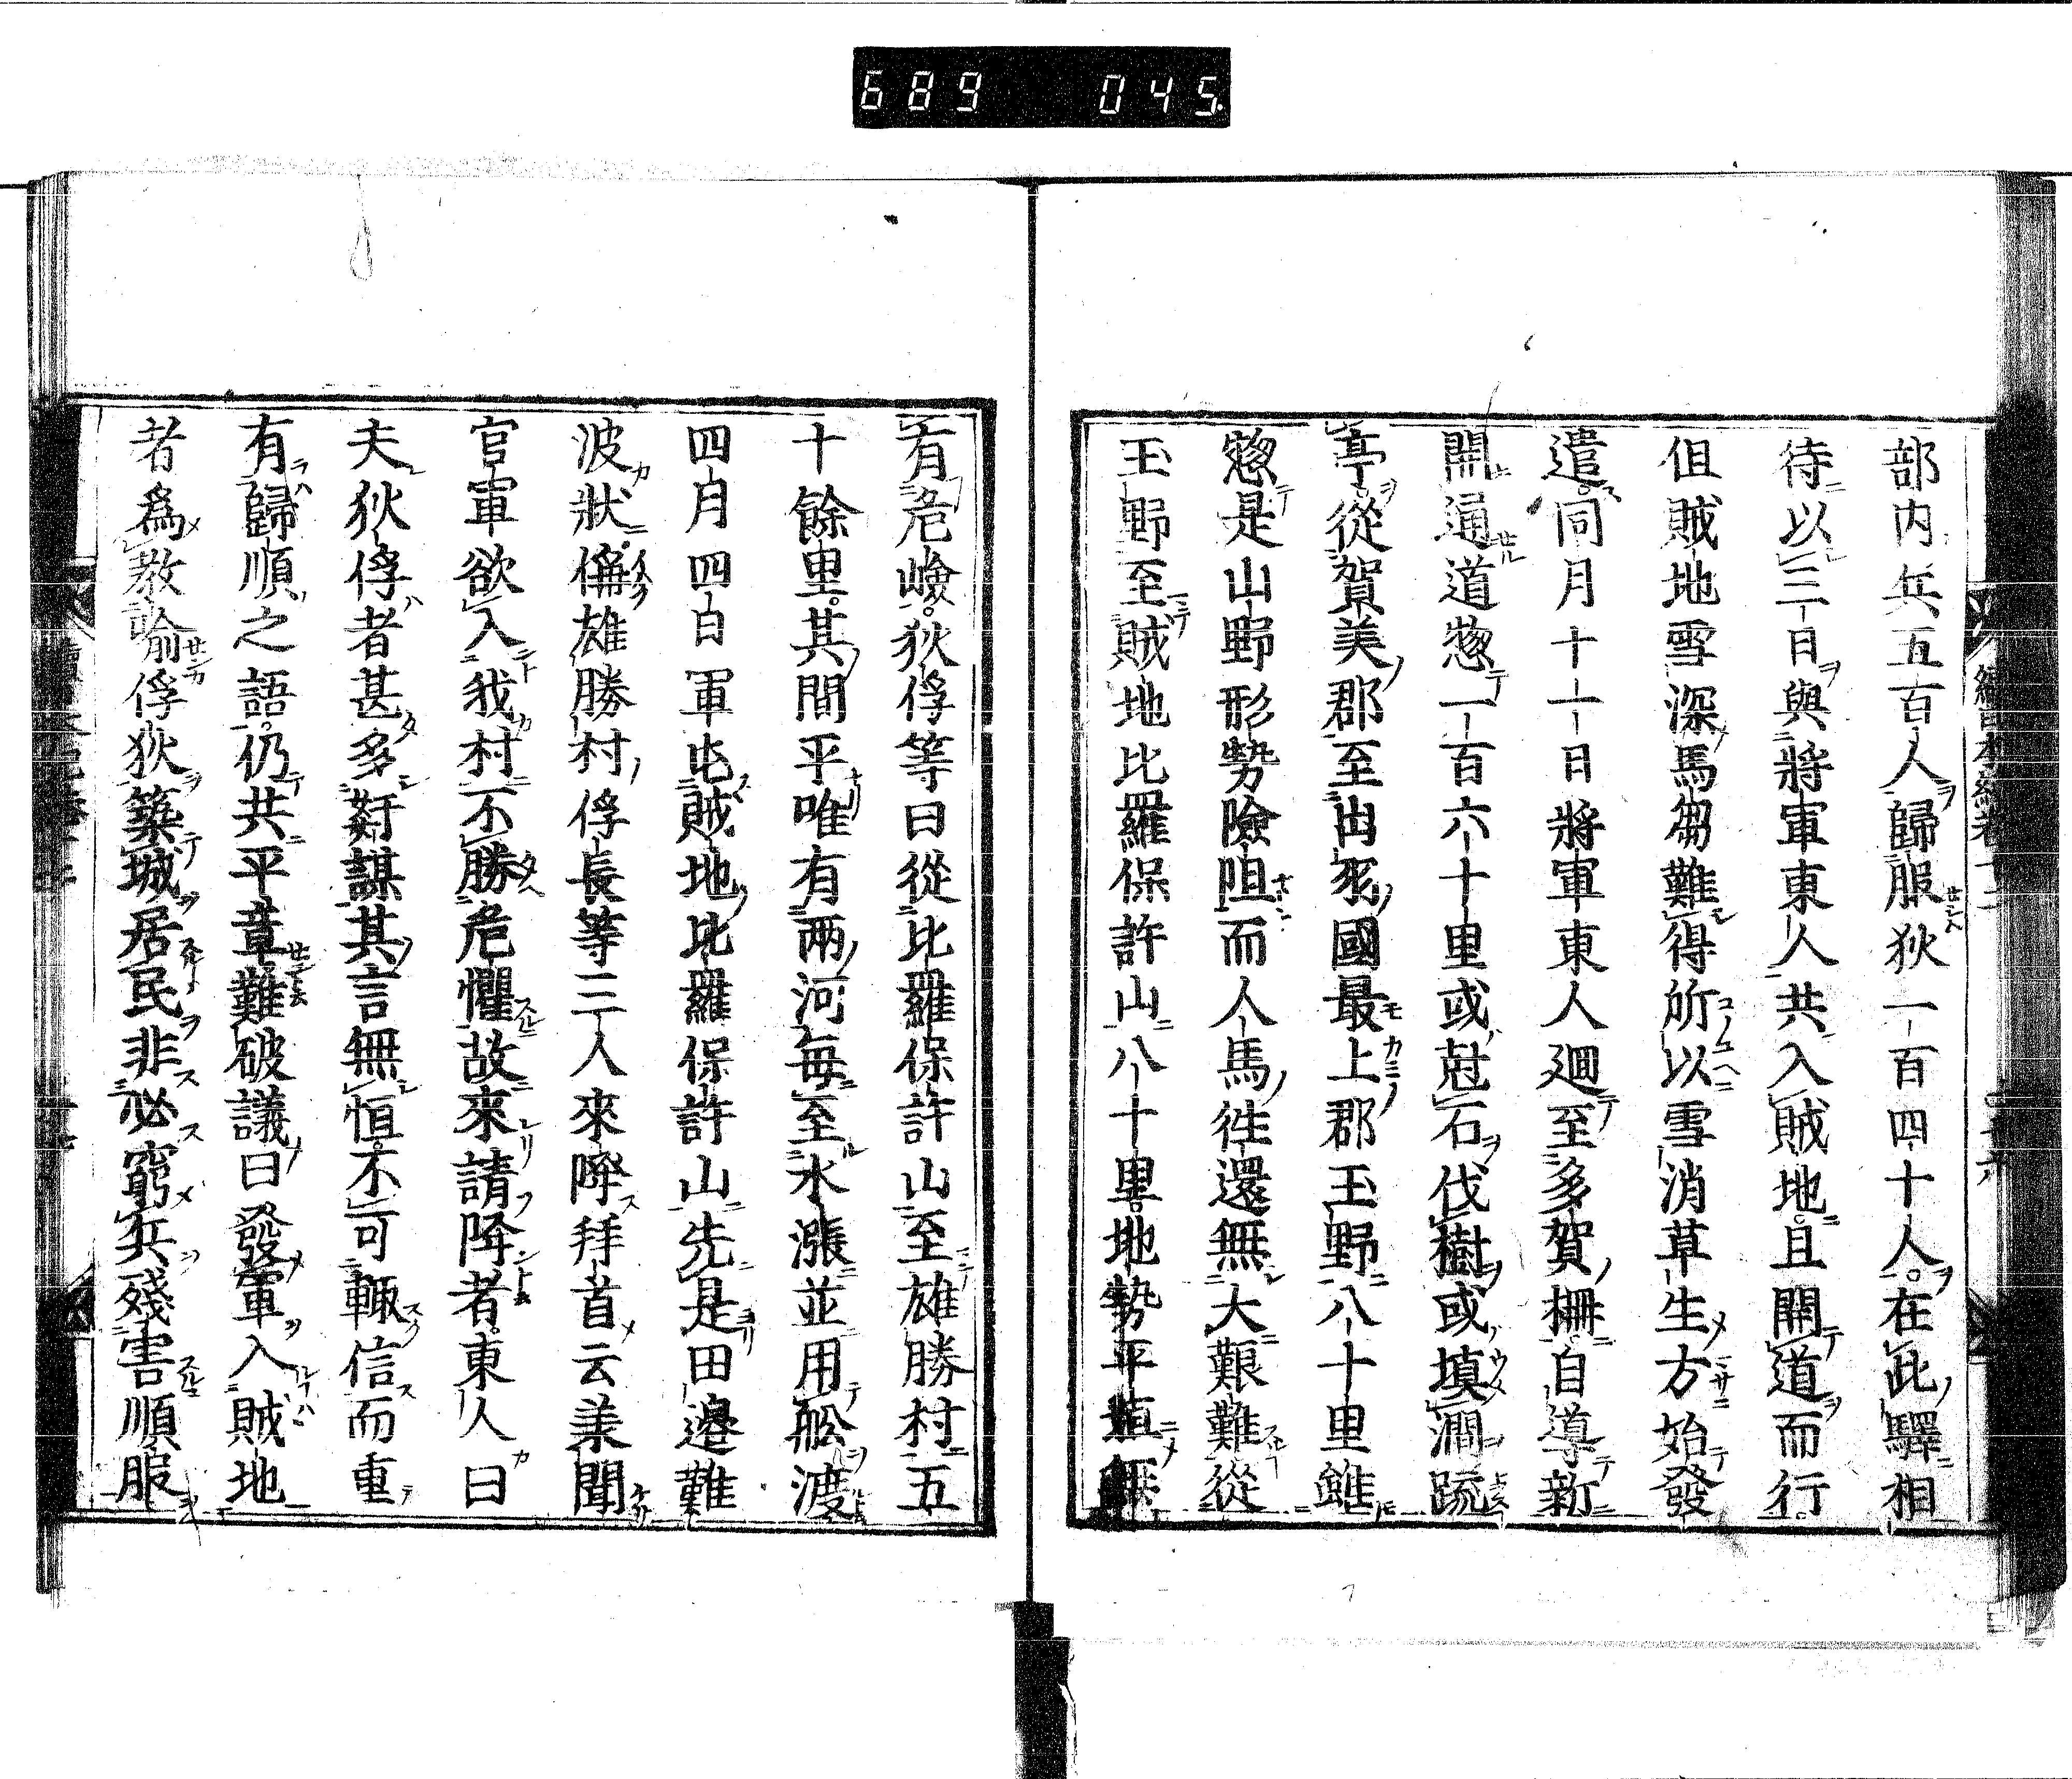 689 045
部内兵五百人歸服狄一百四十人在此驛相
待以三日與將軍東人共入賊地且開道而行
但賊地雪深馬芻難得所以雪消草生方始發
遣同月十一日將軍東人廻至多賀柵自導新
開通道惣一百六十里或尅石伐樹或塡澗疏
亭從賀美郡至出羽國最上郡玉野八十里雖
惣是山野形勢險阻而人馬徃還無大艱難從
玉野至賊地比羅保許山八十里地勢平 無
有危嶮狄俘等曰從比羅保許山至雄勝村五
十餘里其間平唯有兩河毎至水漲並用舩渡
四月四日軍屯賊地比羅保許山先是田邉難
波狀偁雄勝村俘長等三人來降拜首云 聞
官軍欲入我村不勝危懼故來請降者東人曰
夫狄俘者甚多姧謀其言無恒不可輙信而重
有歸順之語仍共平章難破議曰發軍入賊地
者爲教喻俘狄築城居民非必窮兵殘害順服